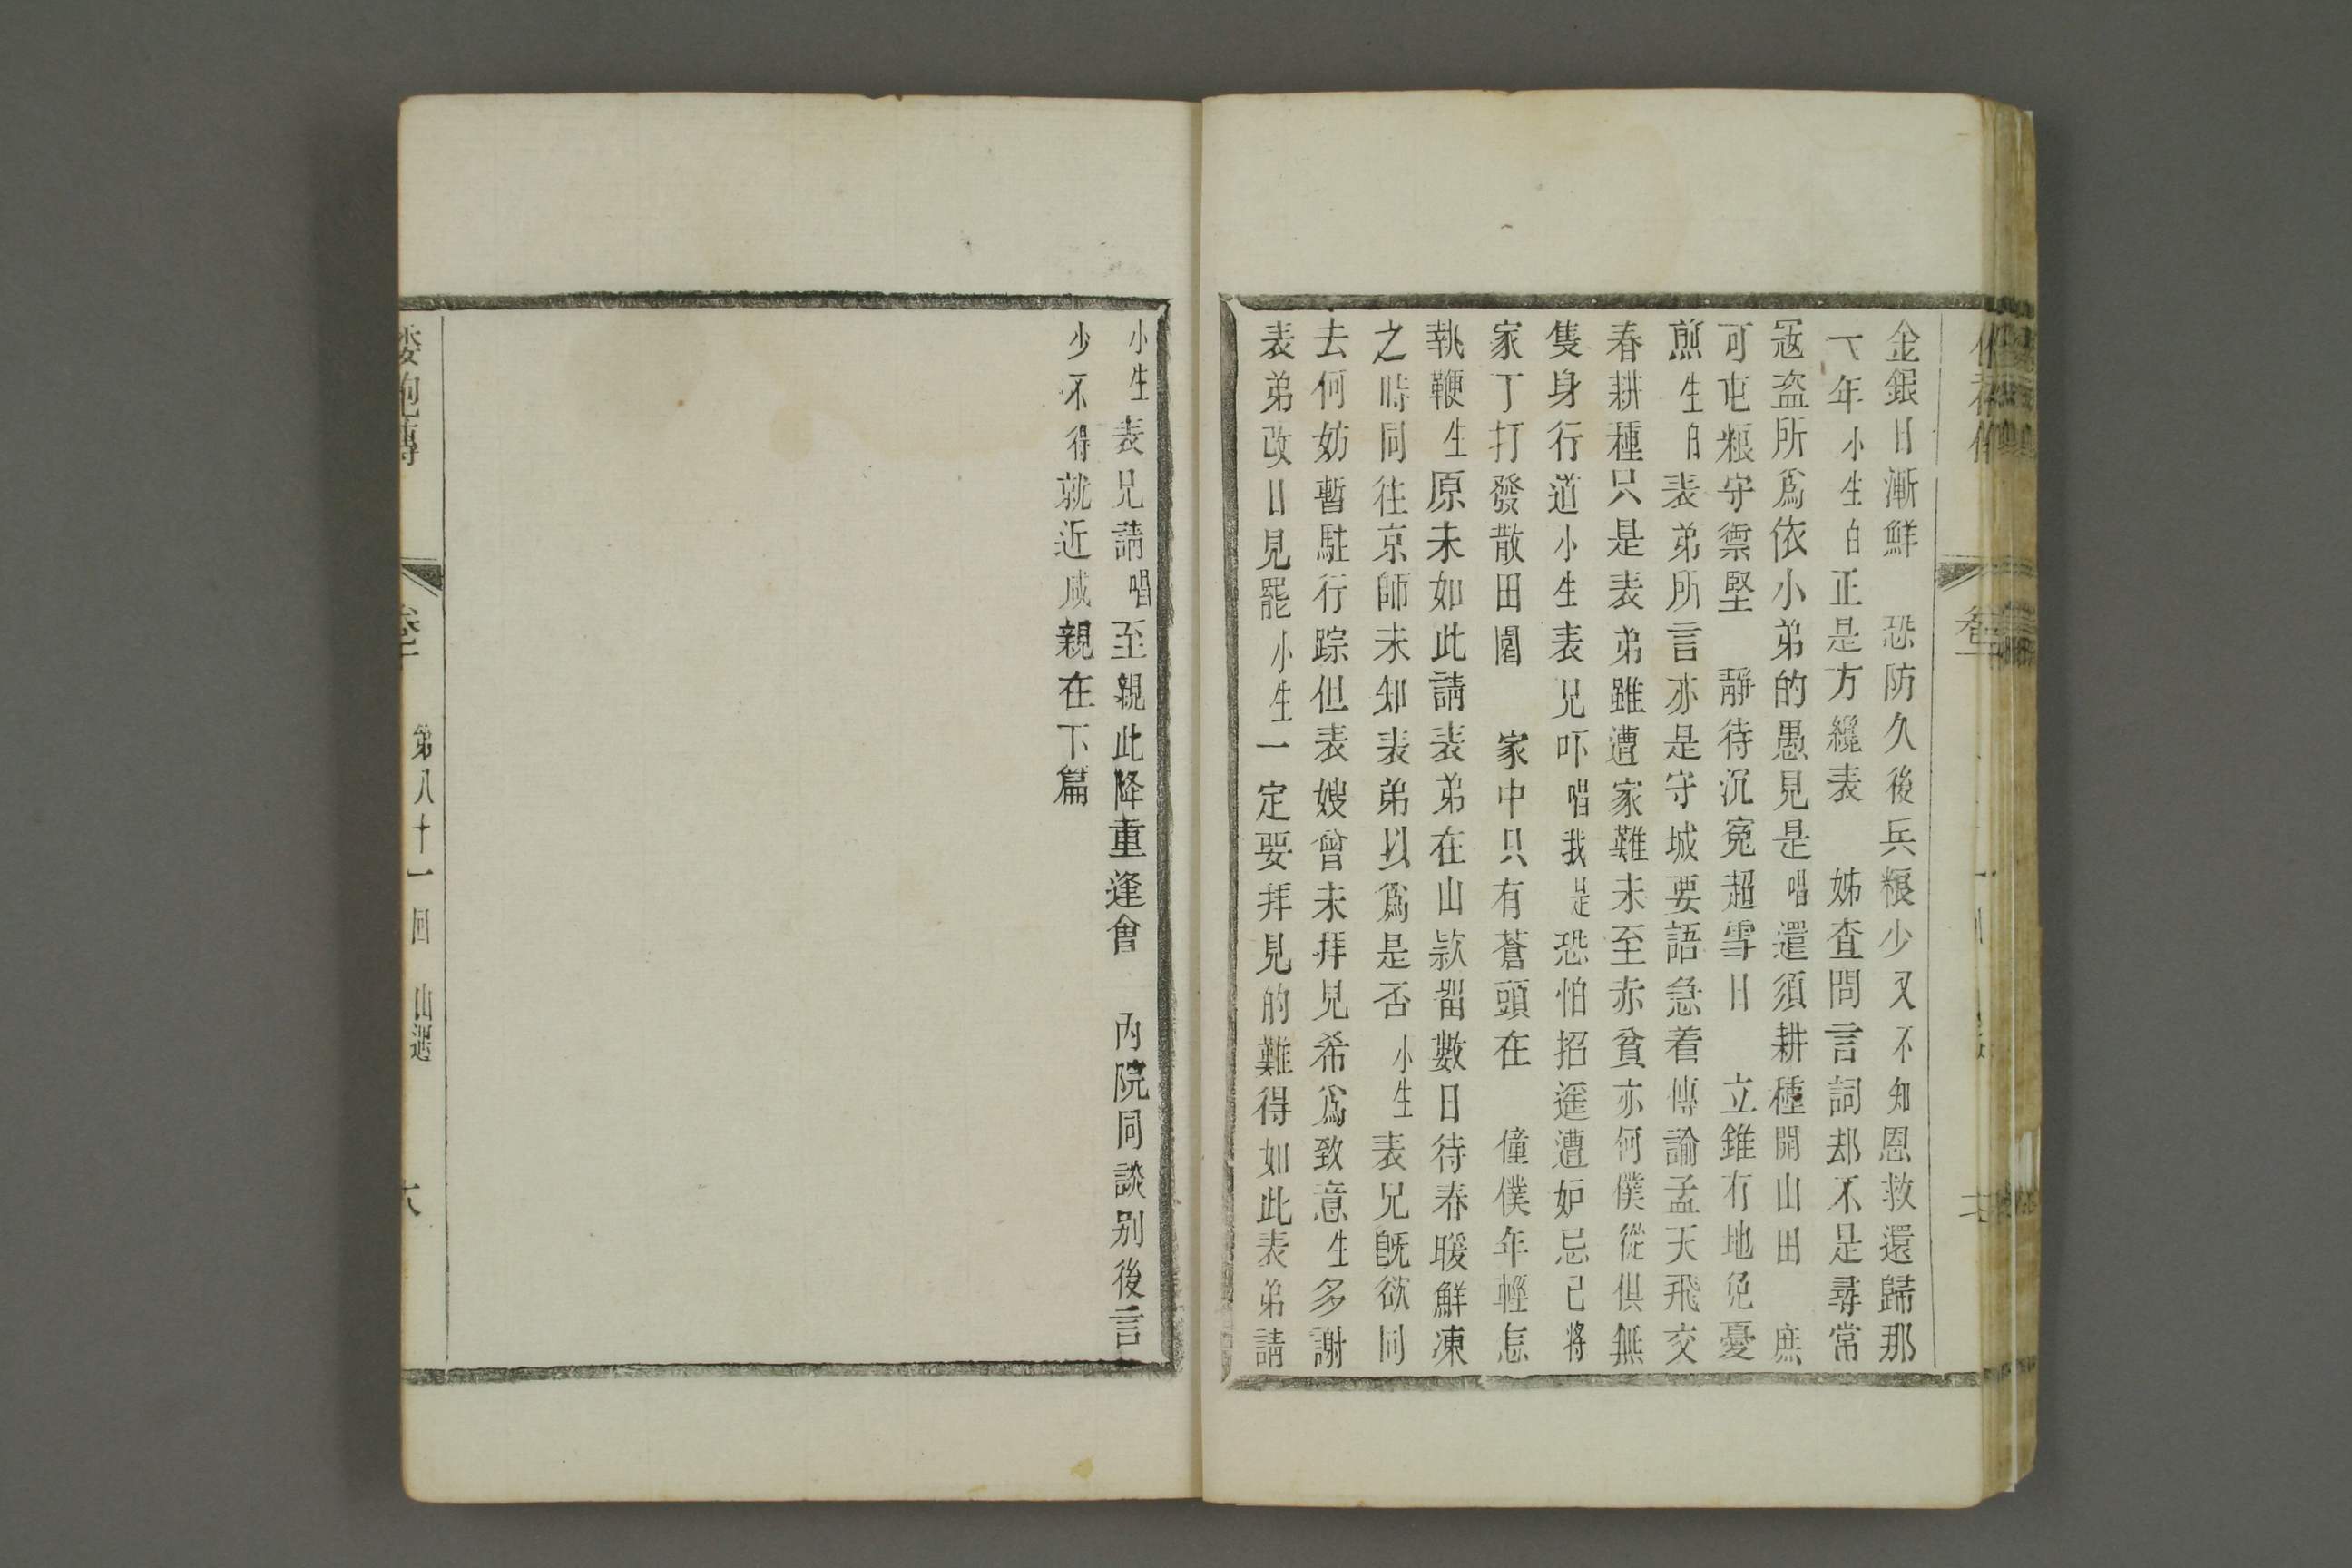 金銀日漸鮮　恐防久後兵粮少又不知恩救還歸那
年小生白正是方纔表　姊查問言詞却不是尋常
寇盗所爲依小弟的愚見是唱還須耕種開山田　庶
可屯粮守禦堅　靜待沉寃超雪日　立錐有地免憂
煎生白表弟所言亦是守城要語急着傳諭孟天飛交
春耕種只是表弟雖遭家難未至赤貧亦何僕從俱無
隻身行道小生表兄吓唱我是恐怕招遥遭妒忌已將
家丁打發散田園　家中只有蒼頭在　僮僕年輕怠
執鞭生原未如此請表弟在山欵畱數日待春暖鮮凍
之時同往京師未知表弟以爲是否小生表兄旣欲同
去何妨暫駐行踪但表嫂曾未拜見希爲致意生多謝
表弟改日見罷小生一定要拜見的難得如此表弟請
小生表兄請唱至親此降重逢會　内院同談别後言
少不得就近咸親在下篇
第八十一回　山遇